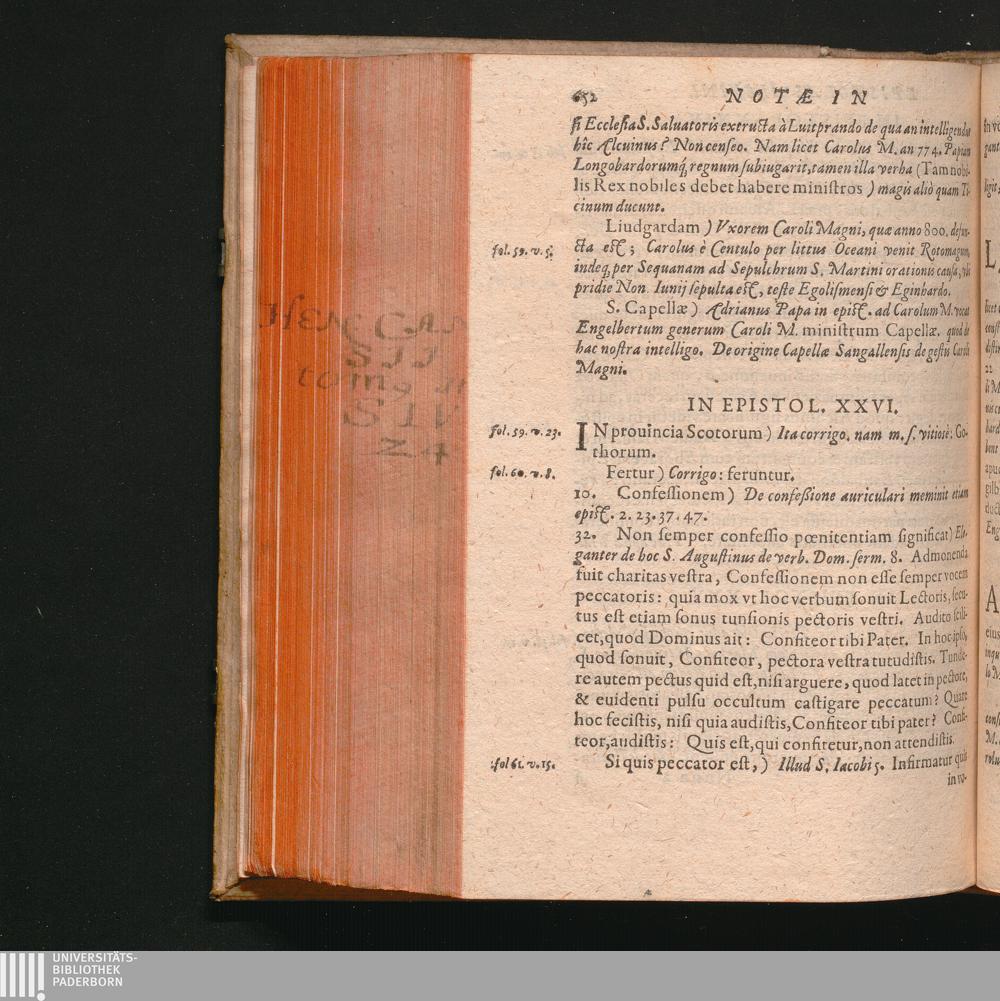 652 NOTÆ IN
ſi Eccleſia S. Saluatoris extructa à Luitprando de qua an intelligendus
hîc Alcuinus? Non cenſeo. Nam licet Carolus M. an 774. Papiam
Longobardorumq́, regnum ſubiugarit, tamen illa verba (Tam nobi-
lis Rex nobiles debet habere miniſtros) magis aliò quam Ti-
cinum ducunt.
Liudgardam) Vxorem Caroli Magni, quæ anno 800. defun-
fol. 59. v. 5.
cta eſt; Carolus è Centulo per littus Oceani venit Rotomagum,
indeq, per Sequanam ad Sepulchrum S. Martini orationis cauſa, vbi
pridie Non. Iunij ſepulta eſt, teſte Egoliſmenſi & Eginhardo.
S. Capellæ) Adrianus Papa in epiſt. ad Carolum M. vocat
Engelbertum generum Caroli M. miniſtrum Capellæ. quod de
hac noſtra intelligo. De origine Capellæ Sangallenſis de geſtis Caroli
Magni.
IN EPISTOL. XXVI.
fol. 59. v. 23.
IN prouincia Scotorum) Ita corrigo, nam m. ſ. vitiosè: Go-
thorum.
fol. 60. v. 8.
Fertur) Corrigo: feruntur.
10. Confeſſionem) De confeßione auriculari meminit etiam
epiſt. 2. 23. 37. 47.
32. Non ſemper confeſſio pœnitentiam ſignificat) Ele-
ganter de hoc S. Auguſtinus de verb. Dom. ſerm. 8. Admonenda
fuit charitas veſtra, Confeſſionem non eſſe ſemper vocem
peccatoris: quia mox vt hoc verbum ſonuit Lectoris, ſecu-
tus eſt etiam ſonus tunſionis pectoris veſtri. Audito ſcili-
cet, quod Dominus ait: Confiteor tibi Pater. In hoc ipſo,
quod ſonuit, Confiteor, pectora veſtra tutudiſtis. Tunde-
re autem pectus quid eſt, niſi arguere, quod latet in pectore,
& euidenti pulſu occultum caſtigare peccatum? Quare
hoc feciſtis, niſi quia audiſtis, Confiteor tibi pater? Confi-
teor, audiſtis: Quis eſt, qui confitetur, non attendiſtis.
fol 61. v. 15.
Si quis peccator eſt,) Illud S. Iacobi 5. Infirmatur quis
in vo-
UNIVERSITÄTS-
BIBLIOTHEK
PADERBORN